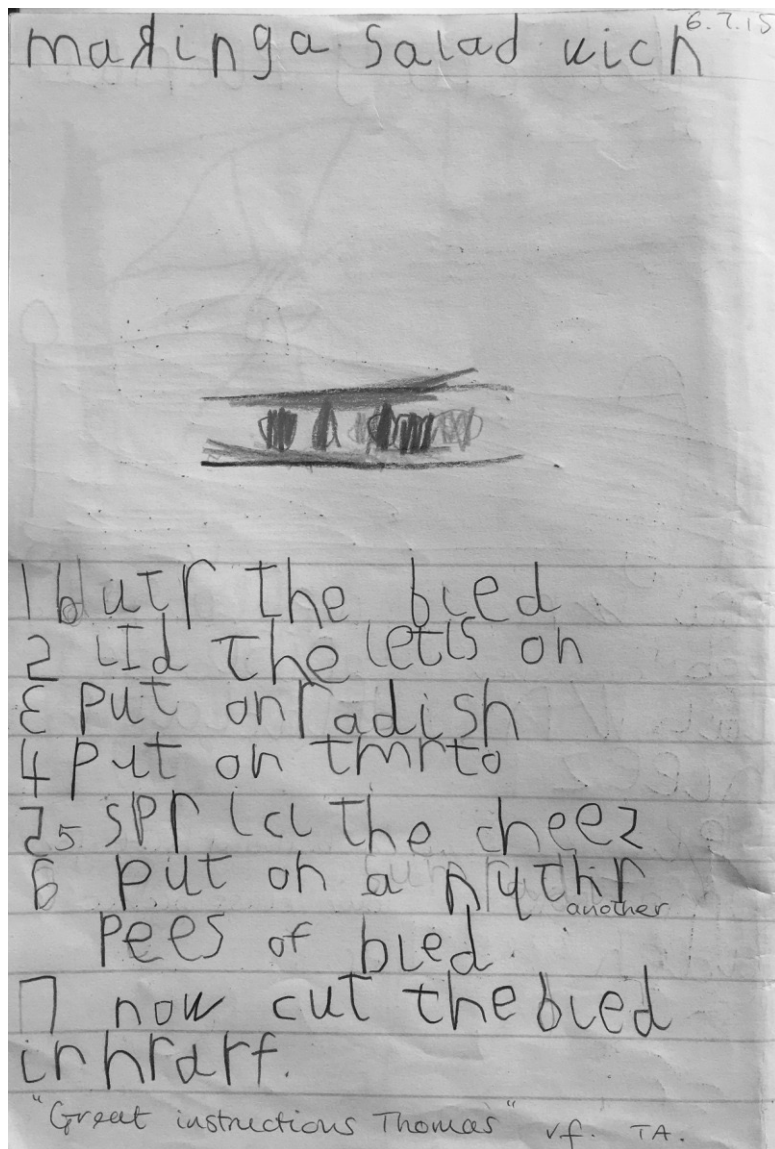 6.7.15
makinga salad wich
1 butr the bred
2 lid the letis on
3 put on radish
4 put on tmrto
5 spricl the cheez
6 put on a nythir
another
pees of bred.
7 now cut the bred
in hrarf.
"Great instructions Thomas" vf. TA.